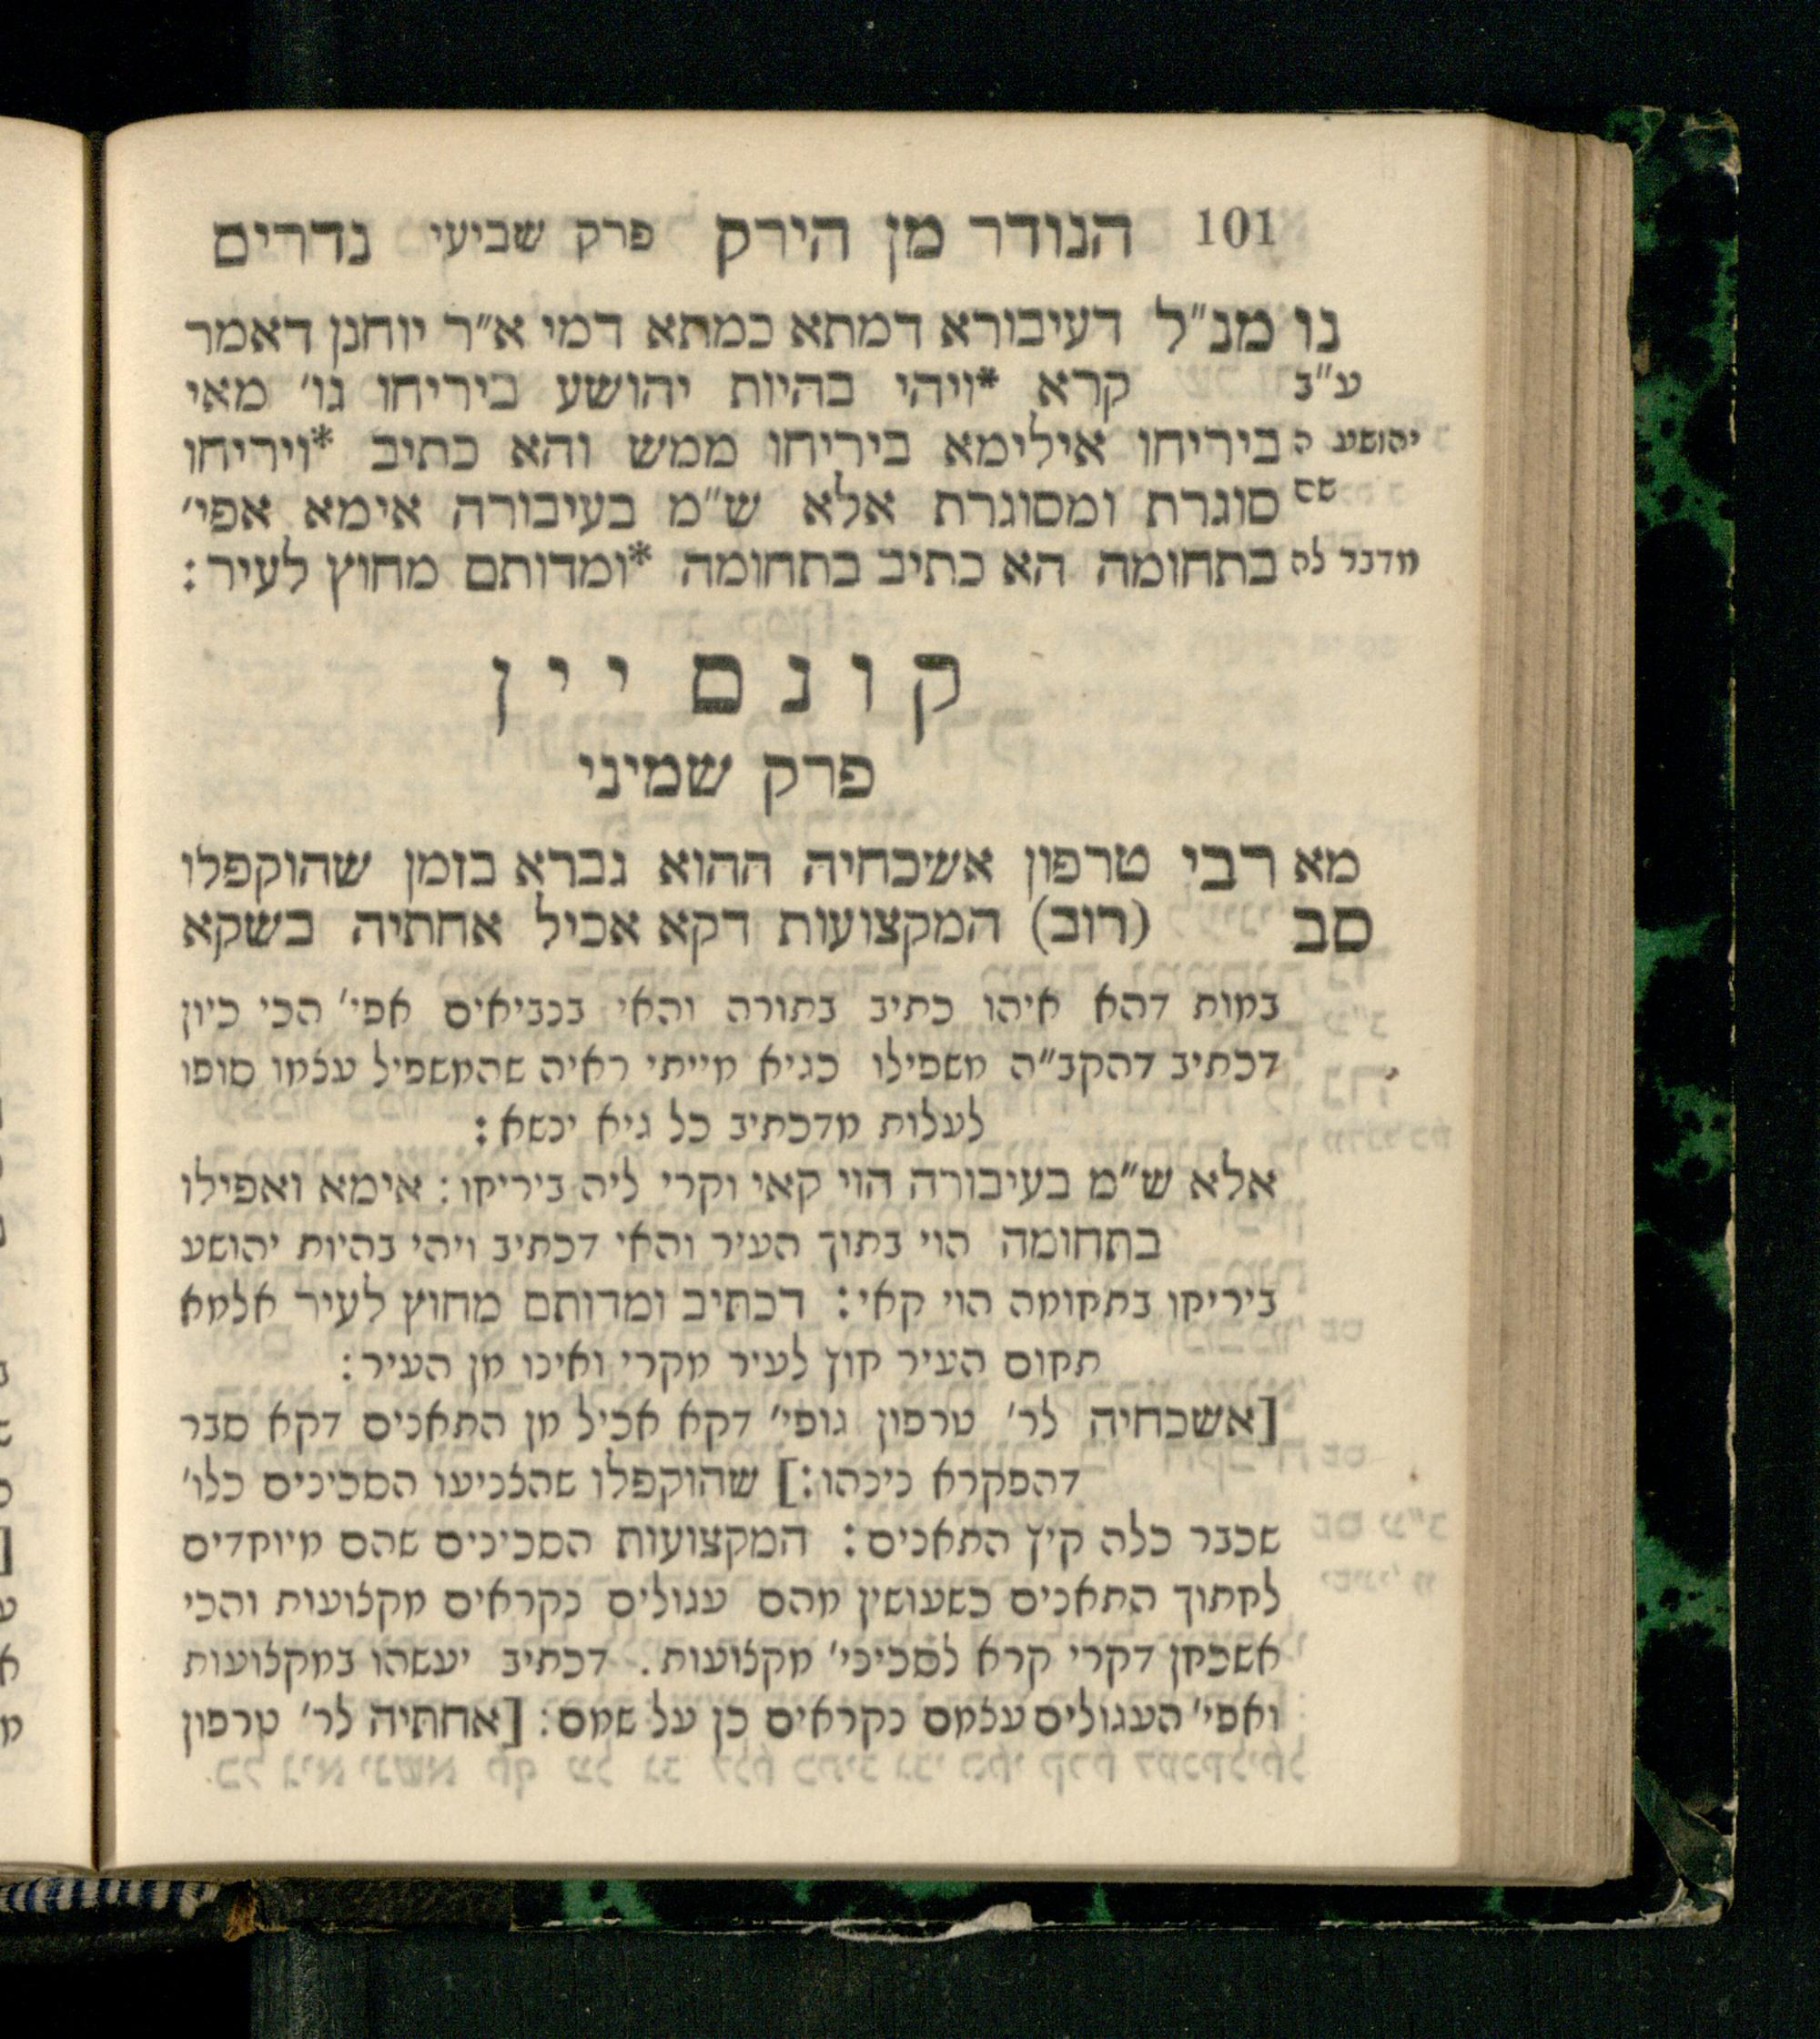 101 הנודר מן הירק פרק שביעי נדרים
נו מנ״ל דעיבורא דמתא כמתא דמי א״ר יוחנן דאמר
ע״ב קרא *ויהי בהיות יהושע ביריחו גו׳ מאי
יהושע ה ביריחו אילימא ביריחו ממש והא כתיב *ויריחו
שם סוגרת ומסוגרת אלא ש״מ בעיבורה אימא אפי׳
מדבר לה בתחומה הא כתיב בתחומה *ומדותם מחוץ לעיר:
קונם יין
פרק שמיני
מא רבי טרפון אשכחיה ההוא גברא בזמן שהוקפלו
סב (רוב) המקצועות דקא אכיל אחתיה בשקא
במות דהא איהו כתיב בתורה והאי בנביאים אפי׳ הכי כיון
דכתיב דהקב״ה משפילו כגיא מייתי ראיה שהמשפיל עצמו סופו
לעלות מדכתיב כל גיא ינשא:
אלא ש״מ בעיבורה הוי קאי וקרי ליה ביריחו: אימא ואפילו
בתחומה הוי בתוך העיר והאי דכתיב ויהי בהיות יהושע
ביריחו בתחומה הוי קאי: דכתיב ומדותם מחוץ לעיר אלמא
תחום העיר חוץ לעיר מקרי ואינו מן העיר:
[אשכחיה לר׳ טרפון גופי׳ דקא אכיל מן התאנים דקא סבר
דהפקרא נינהו:] שהוקפלו שהצניעו הסכינים כלו׳
שכבר כלה קיץ התאנים: המקצועות הסכינים שהם מיוחדים
לחתוך התאנים כשעושין מהם עגולים נקראים מקצועות והכי
אשכחן דקרי קרא לסכיני׳ מקצועות. דכתיב יעשהו במקצועות
ואפי׳ העגולים עצמם נקראים כן על שמם: [אחתיה לר׳ טרפון